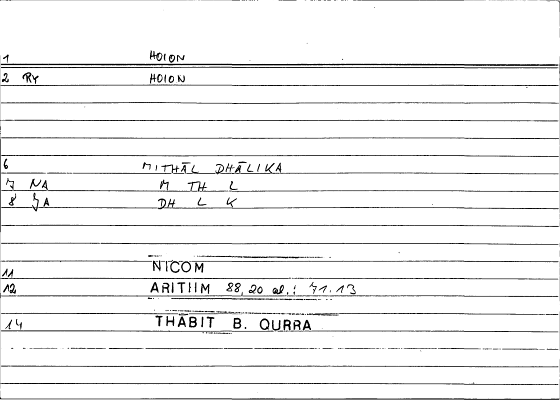 1 HOION
2 RY HOION
6 MITHĀL DHĀLIKA
7 NA M TH L
8 JA DH L K
11 NICOM
12 ARITIIM 88, 20 al.: 71.13
14 THĀBIT B. QURRA